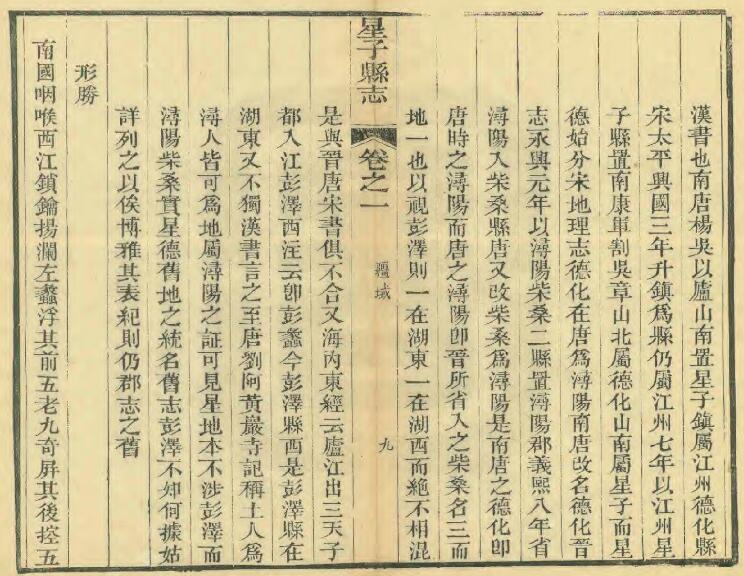 漢書也南唐楊吳以廬山南置星子鎮屬江州德化縣
宋太平興國三年升鎮爲縣仍屬江州七年以江州星
子縣置南康軍割吳章山北屬德化山南屬星子而星
德始分宋地理志德化在唐爲潯陽南唐改名德化晉
志永興元年以潯陽柴桑二縣置潯陽郡義熙八年省
潯陽入柴桑縣唐又改柴桑爲潯陽是南唐之德化卽
唐時之潯陽而唐之潯陽卽晉所省入之柴桑名三而
地一也以視彭澤則一在湖東一在湖西而絶不相混
星子縣志
卷之一
疆域
九
是與晉唐宋書俱不合又海內東經云廬江出三天子
都入江彭澤西注云卽彭蠡今彭澤縣西是彭澤縣在
湖東又不獨漢書言之至唐劉阿黃巖寺記稱土人爲
潯人皆可爲地屬潯陽之証可見星地本不涉彭澤而
潯陽柴桑實星德舊地之統名舊志彭澤不知何據姑
詳列之以俟博雅其表紀則仍郡志之舊
形勝
南國咽喉西江鎖鑰揚瀾左蠡浮其前五老九奇屏其後控五